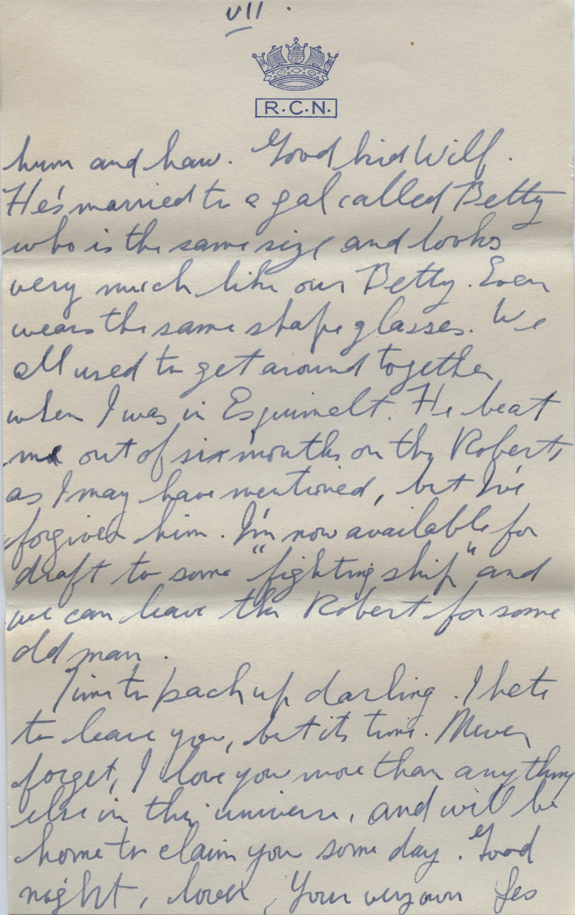 VII.
R.C.N.
hum and haw. Good kid Wilf.
He's married to a gal called Betty
who is the same size and looks
very much like our Betty. Even
wears the same shape glasses. We
all used to get around together
when I was in Esquimalt. He beat
me out of six months on the Roberts
as I may have mentioned, but I've
forgiven him. I'm now available for
draft to some "fighting ship" and
we can leave the Robert for some
old man.
Time to pack up darling. I hate
to leave you, but its time. Never
forget, I love you more than anything
else in this universe, and will be
home to claim you some day. Good
night, lover, Your very own Les